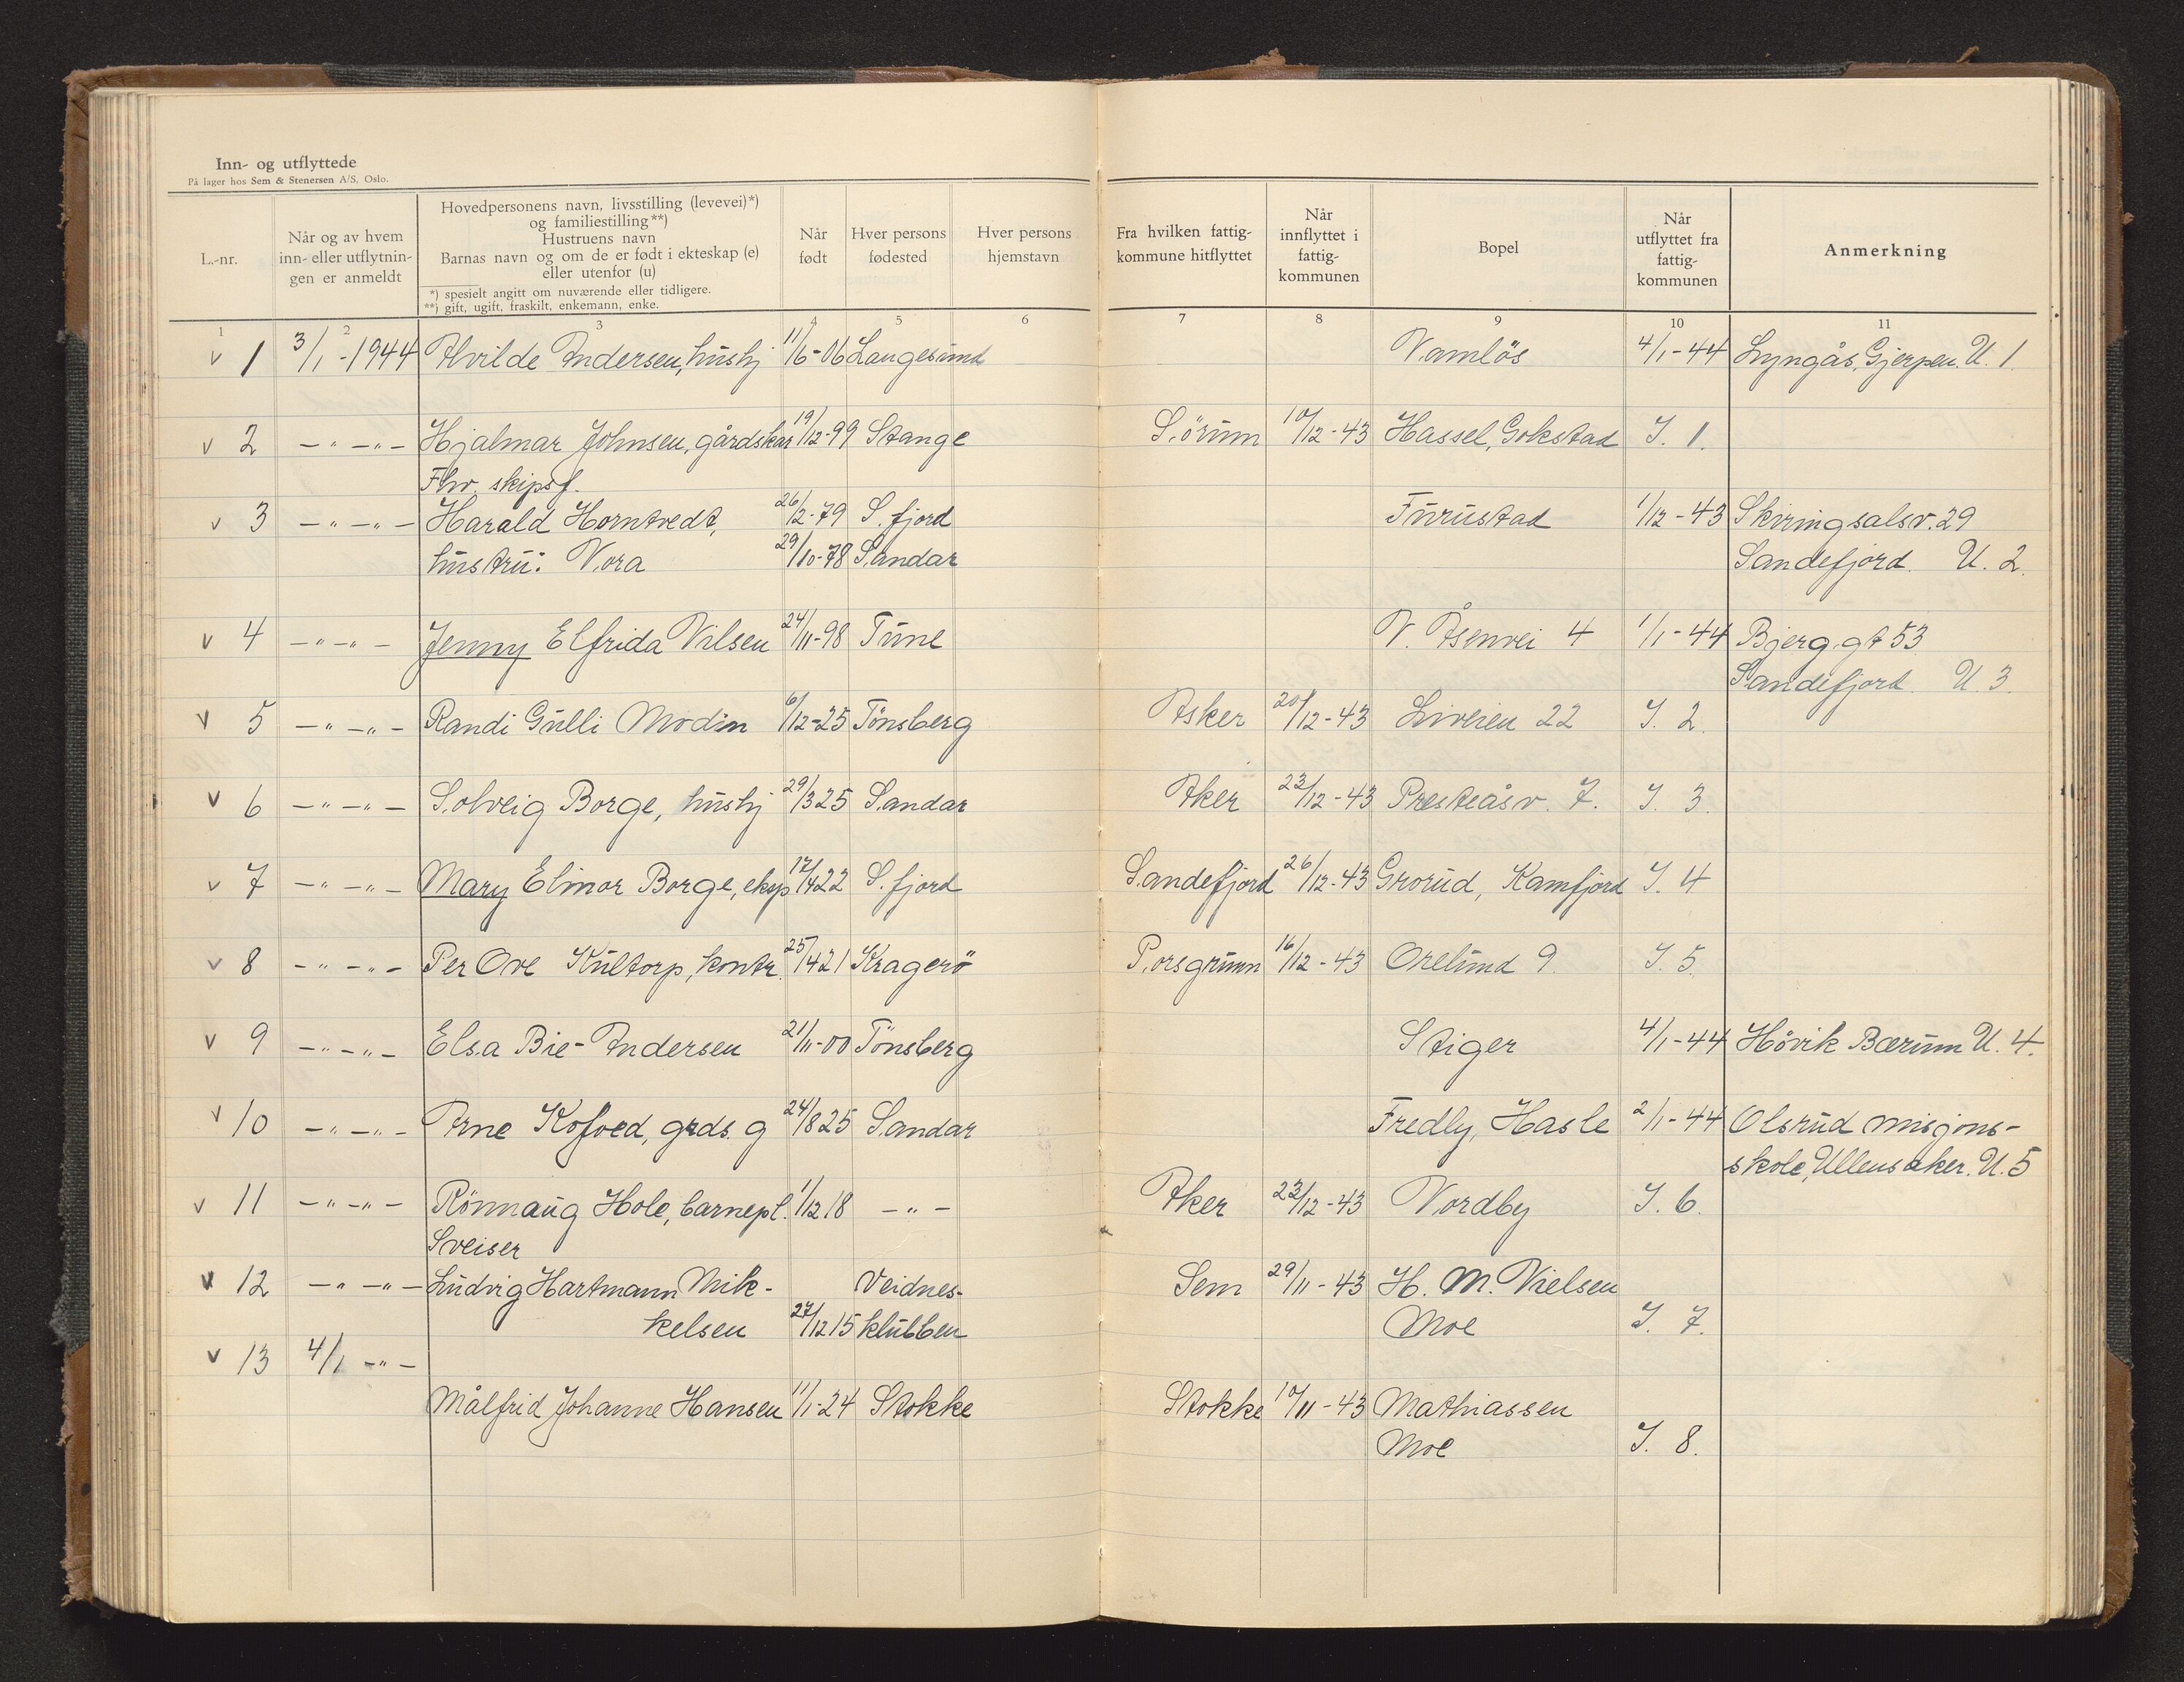 Inn- og utflyttede
På lager hos Sem & Stenersen A/S, Oslo.
L.-nr.
Når og av hvem
inn- eller utflytnin-
gen er anmeldt
Hovedpersonens navn, livsstilling (levevei)*)
og familiestilling **)
Hustruens navn
Barnas navn og om de er født i ekteskap (e)
eller utenfor (u)
*) spesielt angitt om nuværende eller tidligere.
**) gift, ugift, fraskilt, enkemann, enke.
Når
født
Hver persons
fødested
Hver persons
hjemstavn
Fra hvilken fattig-
kommune hitflyttet
Når
innflyttet i
fattig-
kommunen
Bopel
Når
utflyttet fra
fattig-
kommunen
Anmerkning
1 2 3 4 5 6 7 8 9 10 11
v 1 3/1-1944 Alvilde Andersen, hushj 11/6-06 Langesund Namløs 4/1-44 Lyngås, Gjerpen. U. 1.
v 2 -"-"- Hjalmar Johnsen, gårdskar 19/12-99 Stange Sørum 10/12-43 Hassel, Gokstad I. 1.
Fhv. skipsf.
v 3 -"-"- Harald Horntvedt, 26/2-79 S. fjord Furustad 1/12-43 Skiringsalsv. 29
hustru: Nora 29/10-78 Sandar Sandefjord. U. 2.
v 4 -"-"- Jenny Elfrida Nilsen 24/11-98 Tune N. Åsenvei 4 1/1-44 Bjerg. gt 53
Sandefjord. U. 3.
v 5 -"-"- Randi Gulli Modin 6/12-25 Tønsberg Asker 20/12-43 Liveien 22 I. 2.
v 6 -"-"- Solveig Borge, hushj 29/3 25 Sandar Aker 22/12-43 Presteåsv. 7. I. 3.
v 7 -"-"- Mary Elinor Borge, eksp 17/4 22 S. fjord Sandefjord 26/12-43 Grorud, Kamfjord I. 4
v 8 -"-"- Per Ove Kultorp, kontr. 25/4 21 Kragerö Porsgrunn 16/12-43 Orelund 9. I. 5.
v 9 -"-"- Elsa Bie-Andersen 21/11-00 Tønsberg Stiger 4/1-44 Høvik Bærum U. 4.
v 10 -"-"- Arne Kofoed, grds. g 24/8 25 Sandar Fredly, Hasle 2/1-44 Olsrud misjons-
skole, Ullensaker. U. 5
v 11 -"-"- Rønnaug Hole, barnepl. 1/12 18 -"- Aker 22/12-43 Nordby I. 6.
Sveiser
v 12 -"-"- Ludvig Hartmann Mik- Veidnes- Sem 29/11-43 H. M. Nielsen
kelsen 27/12 15 klubben Moe I. 7.
v 13 4/1 -"-
Målfrid Johanne Hansen 11/1-24 Stokke Stokke 10/11-43 Mathiassen
Moe I. 8.